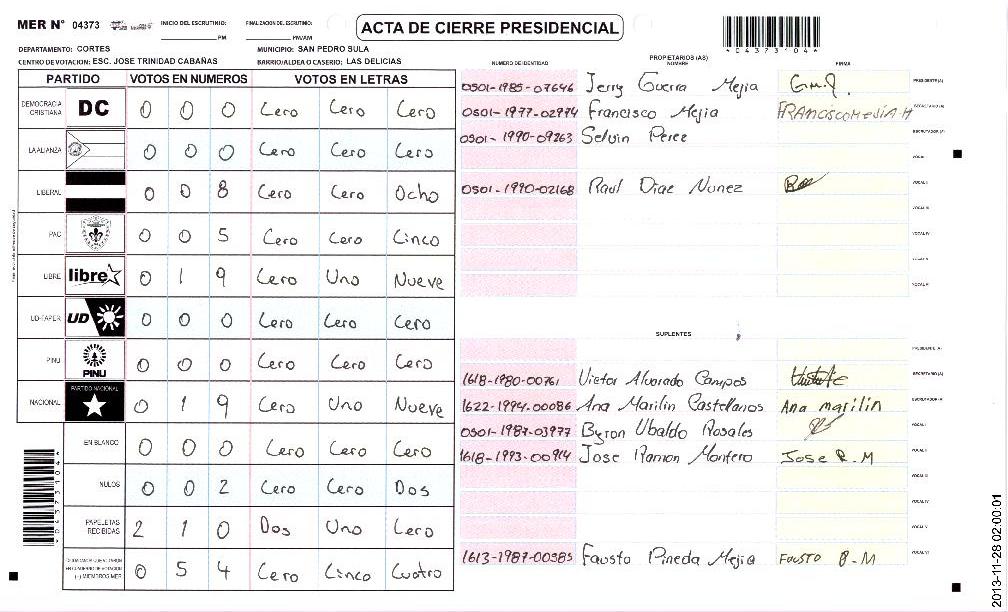 MER N° 04373 INICIO DEL ESCRUTINIO: PM FINALIZACION DEL ESCRUTINIO: PM/AM
ACTA DE CIERRE PRESIDENCIAL
04373104
DEPARTAMENTO: CORTES MUNICIPIO: SAN PEDRO SULA
CENTRO DE VOTACION: ESC. JOSE TRINIDAD CABAÑAS BARRIO/ALDEA O CASERIO: LAS DELICIAS
PARTIDO VOTOS EN NUMEROS VOTOS EN LETRAS
DEMOCRACIA CRISTIANA DC 0 0 0 Cero Cero Cero
LA ALIANZA 0 0 0 Cero Cero Cero
LIBERAL 0 0 8 Cero Cero Ocho
PAC 0 0 5 Cero Cero Cinco
LIBRE libre 0 1 9 Cero Uno Nueve
UD-FAPER UD 0 0 0 Cero Cero Cero
PINU PINU 0 0 0 Cero Cero Cero
NACIONAL PARTIDO NACIONAL 0 1 9 Cero Uno Nueve
EN BLANCO 0 0 0 Cero Cero Cero
NULOS 0 0 2 Cero Cero Dos
PAPELETAS RECIBIDAS 2 1 0 Dos Uno Cero
(+) MIEMBROS MER 0 5 4 Cero Cinco Cuatro
PROPIETARIOS (AS)
NUMERO DE IDENTIDAD NOMBRE FIRMA
0501-1985-07646 Jerry Guerra Mejia G.M.J. PRESIDENTE (A)
0501-1977-02974 Francisco Mejia FRANCISCO MEJIA H SECRETARIO (A)
0501-1990-09263 Selvin Perez ESCRUTADOR (A)
VOCAL I
0501-1990-02168 Raul Diaz Nunez VOCAL II
VOCAL III
VOCAL IV
VOCAL V
VOCAL VI
SUPLENTES
PRESIDENTE (A)
1618-1980-00761 Victor Alvarado Campos SECRETARIO (A)
1622-1994-00086 Ana Marilin Castellanos Ana marilin ESCRUTADOR (A)
0501-1987-03977 Byron Ubaldo Rosales VOCAL I
1618-1993-00914 Jose Ramon Montero Jose R.M VOCAL II
VOCAL III
VOCAL IV
VOCAL V
1613-1987-00385 Fausto Pineda Mejia Fausto P.M VOCAL VI
2013-11-28 02:00:01